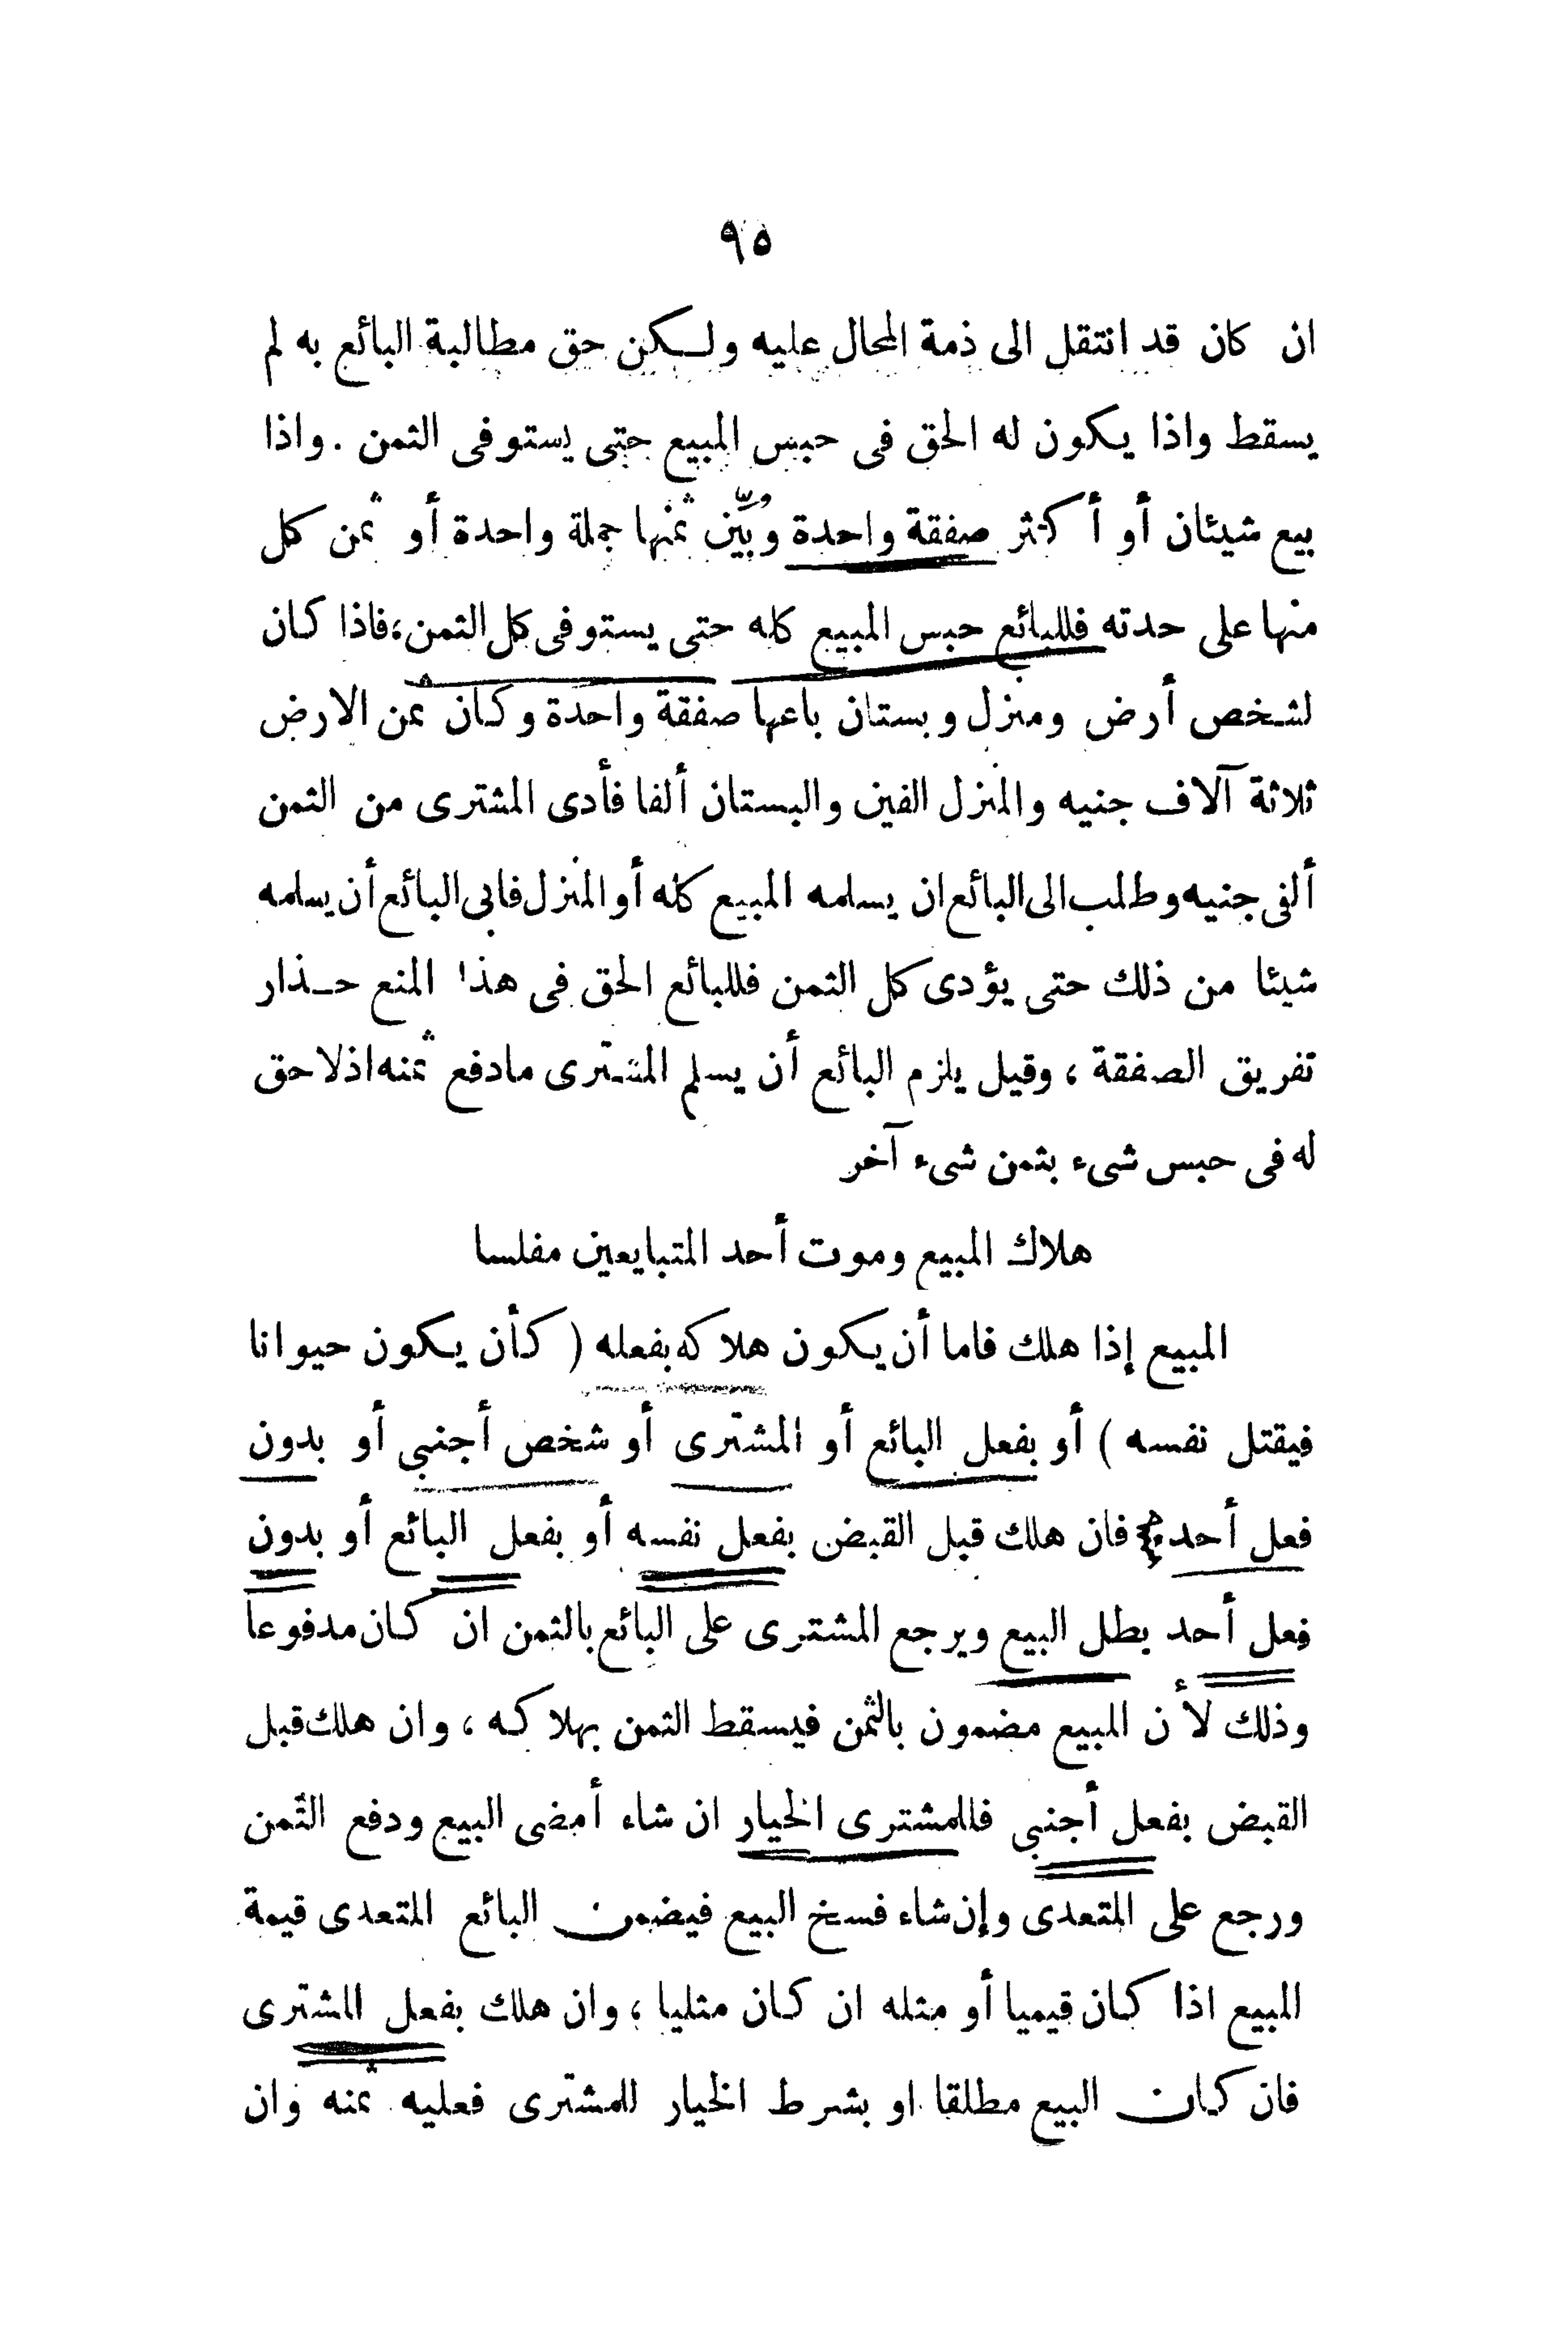 ٩٥
ان كان قد انتقل الى ذمة المحال عليه ولكن حق مطالبة البائع به لم
يسقط واذا يكون له الحق فى حبس المبيع حتى يستوفى الثمن . واذا
بيع شيئان أو أكثر صفقة واحدة وبُيِّن ثمنها جملة واحدة أو ثمن كل
منها على حدته فللبائع حبس المبيع كله حتى يستوفى كل الثمن، فاذا كان
لشخص أرض ومنزل وبستان باعها صفقة واحدة وكان ثمن الارض
ثلاثة آلاف جنيه والمنزل الفين والبستان ألفا فأدى المشترى من الثمن
ألفى جنيه وطلب الى البائع ان يسلمه المبيع كله أو المنزل فابى البائع أن يسلمه
شيئا من ذلك حتى يؤدى كل الثمن فللبائع الحق فى هذا المنع حذار
تفريق الصفقة ، وقيل يلزم البائع أن يسلم المشترى مادفع ثمنه اذ لا حق
له فى حبس شىء بثمن شىء آخر
هلاك المبيع وموت أحد المتبايعين مفلسا
المبيع إذا هلك فاما أن يكون هلاكه بفعله ( كأن يكون حيوانا
فيقتل نفسه ) أو بفعل البائع أو المشترى أو شخص أجنبى أو بدون
فعل أحد فان هلك قبل القبض بفعل نفسه أو بفعل البائع أو بدون
فعل أحد بطل البيع ويرجع المشترى على البائع بالثمن ان كان مدفوعا
وذلك لأن المبيع مضمون بالثمن فيسقط الثمن بهلاكه ، وان هلك قبل
القبض بفعل أجنبى فللمشترى الخيار ان شاء أمضى البيع ودفع الثمن
ورجع على المتعدى وإن شاء فسخ البيع فيضمن البائع المتعدى قيمة
المبيع اذا كان قيميا أو مثله ان كان مثليا ، وان هلك بفعل المشترى
فان كان البيع مطلقا او بشرط الخيار للمشترى فعليه ثمنه وان